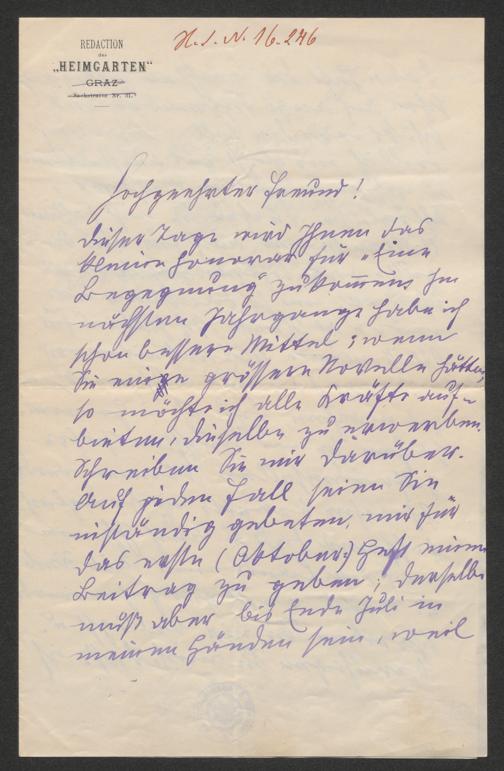 H.I.N. 16.246
REDACTION
des
„HEIMGARTEN“
GRAZ
Sackstrasse Nr.
Hochgeehrter Freund!
Dieser Tage wird Ihnen das
kleine Honorar für „Eine
Begegnung“ zukommen. Im
nächsten Jahrgange habe ich
schon bessere Mittel; wenn
Sie eine grössere Novelle hätten,
so möchte ich alle Kräfte auf-
bieten, dieselbe zu erwerben.
Schreiben Sie mir darüber.
Auf jeden Fall seien Sie
inständig gebeten, mir für
das erste (Oktober:) Heft einen
Beitrag zu geben; derselbe
muß aber bis Ende Juli in
meinen Händen sein, weil